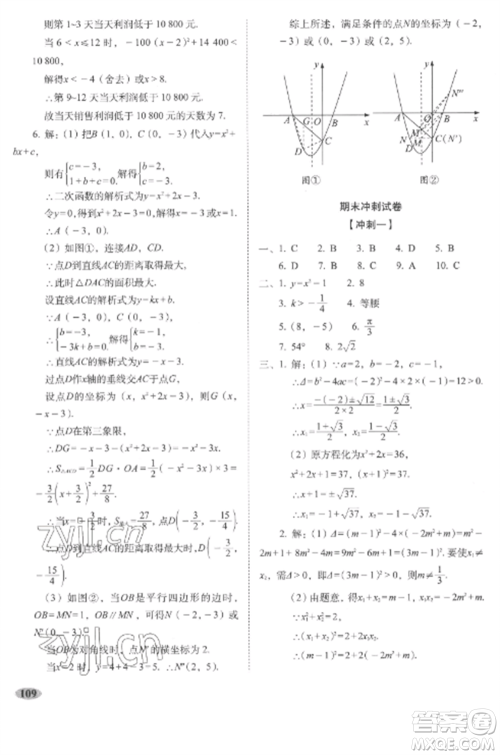 则第 1~3 天当天利润低于 10 800 元.
当 6<x≤12 时, -100(x-2)²+14 400<
10 800,
解得 x<-4(舍去)或 x>8.
∴第 9~12 天当天利润低于 10 800 元.
故当天销售利润低于 10 800 元的天数为 7.
6. 解: (1) 把 B(1, 0), C(0, -3)代入 y=x²+
bx+c,
则有{c=-3, 1+b+c=0. 解得{b=2, c=-3.
∴二次函数的解析式为 y=x²+2x-3.
令 y=0, 得到 x²+2x-3=0, 解得 x=-3 或 1.
∴A(-3, 0).
(2) 如图①, 连接 AD.
∵点 D 到直线 AC 的距离取得最大,
∴此时△DAC 的面积最大.
设直线 AC 的解析式为 y=kx+b.
∵A(-3, 0), C(0, -3),
∴{b=-3, -3k+b=0. 解得{k=-1, b=-3.
∴直线 AC 的解析式为 y=-x-3.
过点 D 作 x 轴的垂线交 AC 于点 G.
设点 D 的坐标为(x, x²+2x-3), 则 G(x,
-x-3).
∵点 D 在第三象限,
∴DG=-x-3-(x²+2x-3)=-x²-3x.
∴S△ACD=1/2 DG·OA=1/2(-x²-3x)×3=
-3/2(x+3/2)²+27/8.
∴当 x=-3/2 时, S最大=27/8, 点 D(-3/2, -15/4).
∴点 D 到直线 AC 的距离取得最大时, D(-3/2,
-15/4).
(3) 如图②, 当 OB 是平行四边形的边时,
OB=MN=1, OB∥MN, 可得 N(-2, -3)或
N′(0, -3).
当 OB 为对角线时, 点 N″的横坐标为 2.
当 x=2 时, y=4+4-3=5. ∴N″(2, 5).
109
综上所述, 满足条件的点 N 的坐标为(-2,
-3)或(0, -3)或(2, 5).
图① 图②
期末冲刺试卷
【冲刺一】
一、1. C 2. B 3. A 4. B 5. C
6. D 7. D 8. C 9. A 10. D
二、1. y=x²-1 2. 3
3. k>-1/4 4. 等腰
5. (8, -5) 6. π/3
7. 54° 8. 2√2
三、1. 解: (1) ∵a=2, b=-2, c=-1,
∴Δ=b²-4ac=(-2)²-4×2×(-1)=12>0.
∴x=(-(-2)±√12)/(2×2)=(1±√3)/2.
∴x₁=(1+√3)/2, x₂=(1-√3)/2.
(2) 原方程化为 x²+2x-36=0.
x²+2x+1=37. ∴x+1=±√37.
∴x₁=-1+√37, x₂=-1-√37.
2. 解: (1) Δ=(m-1)²-4×(-2m²+m)=
9m²-6m+1=(3m-1)²≥0,
要使 x₁≠x₂, 需 Δ>0, 即 m≠1/3.
(2) 由题意, 得 x₁+x₂=-(m-1)=1-m,
∵x₁²+x₂²=2, ∴(x₁+x₂)²-2x₁x₂=2.
∴(m-1)²-2(-2m²+m)=2.
zyjl.cn
zyjl.cn
答案圈
MXQE.COM